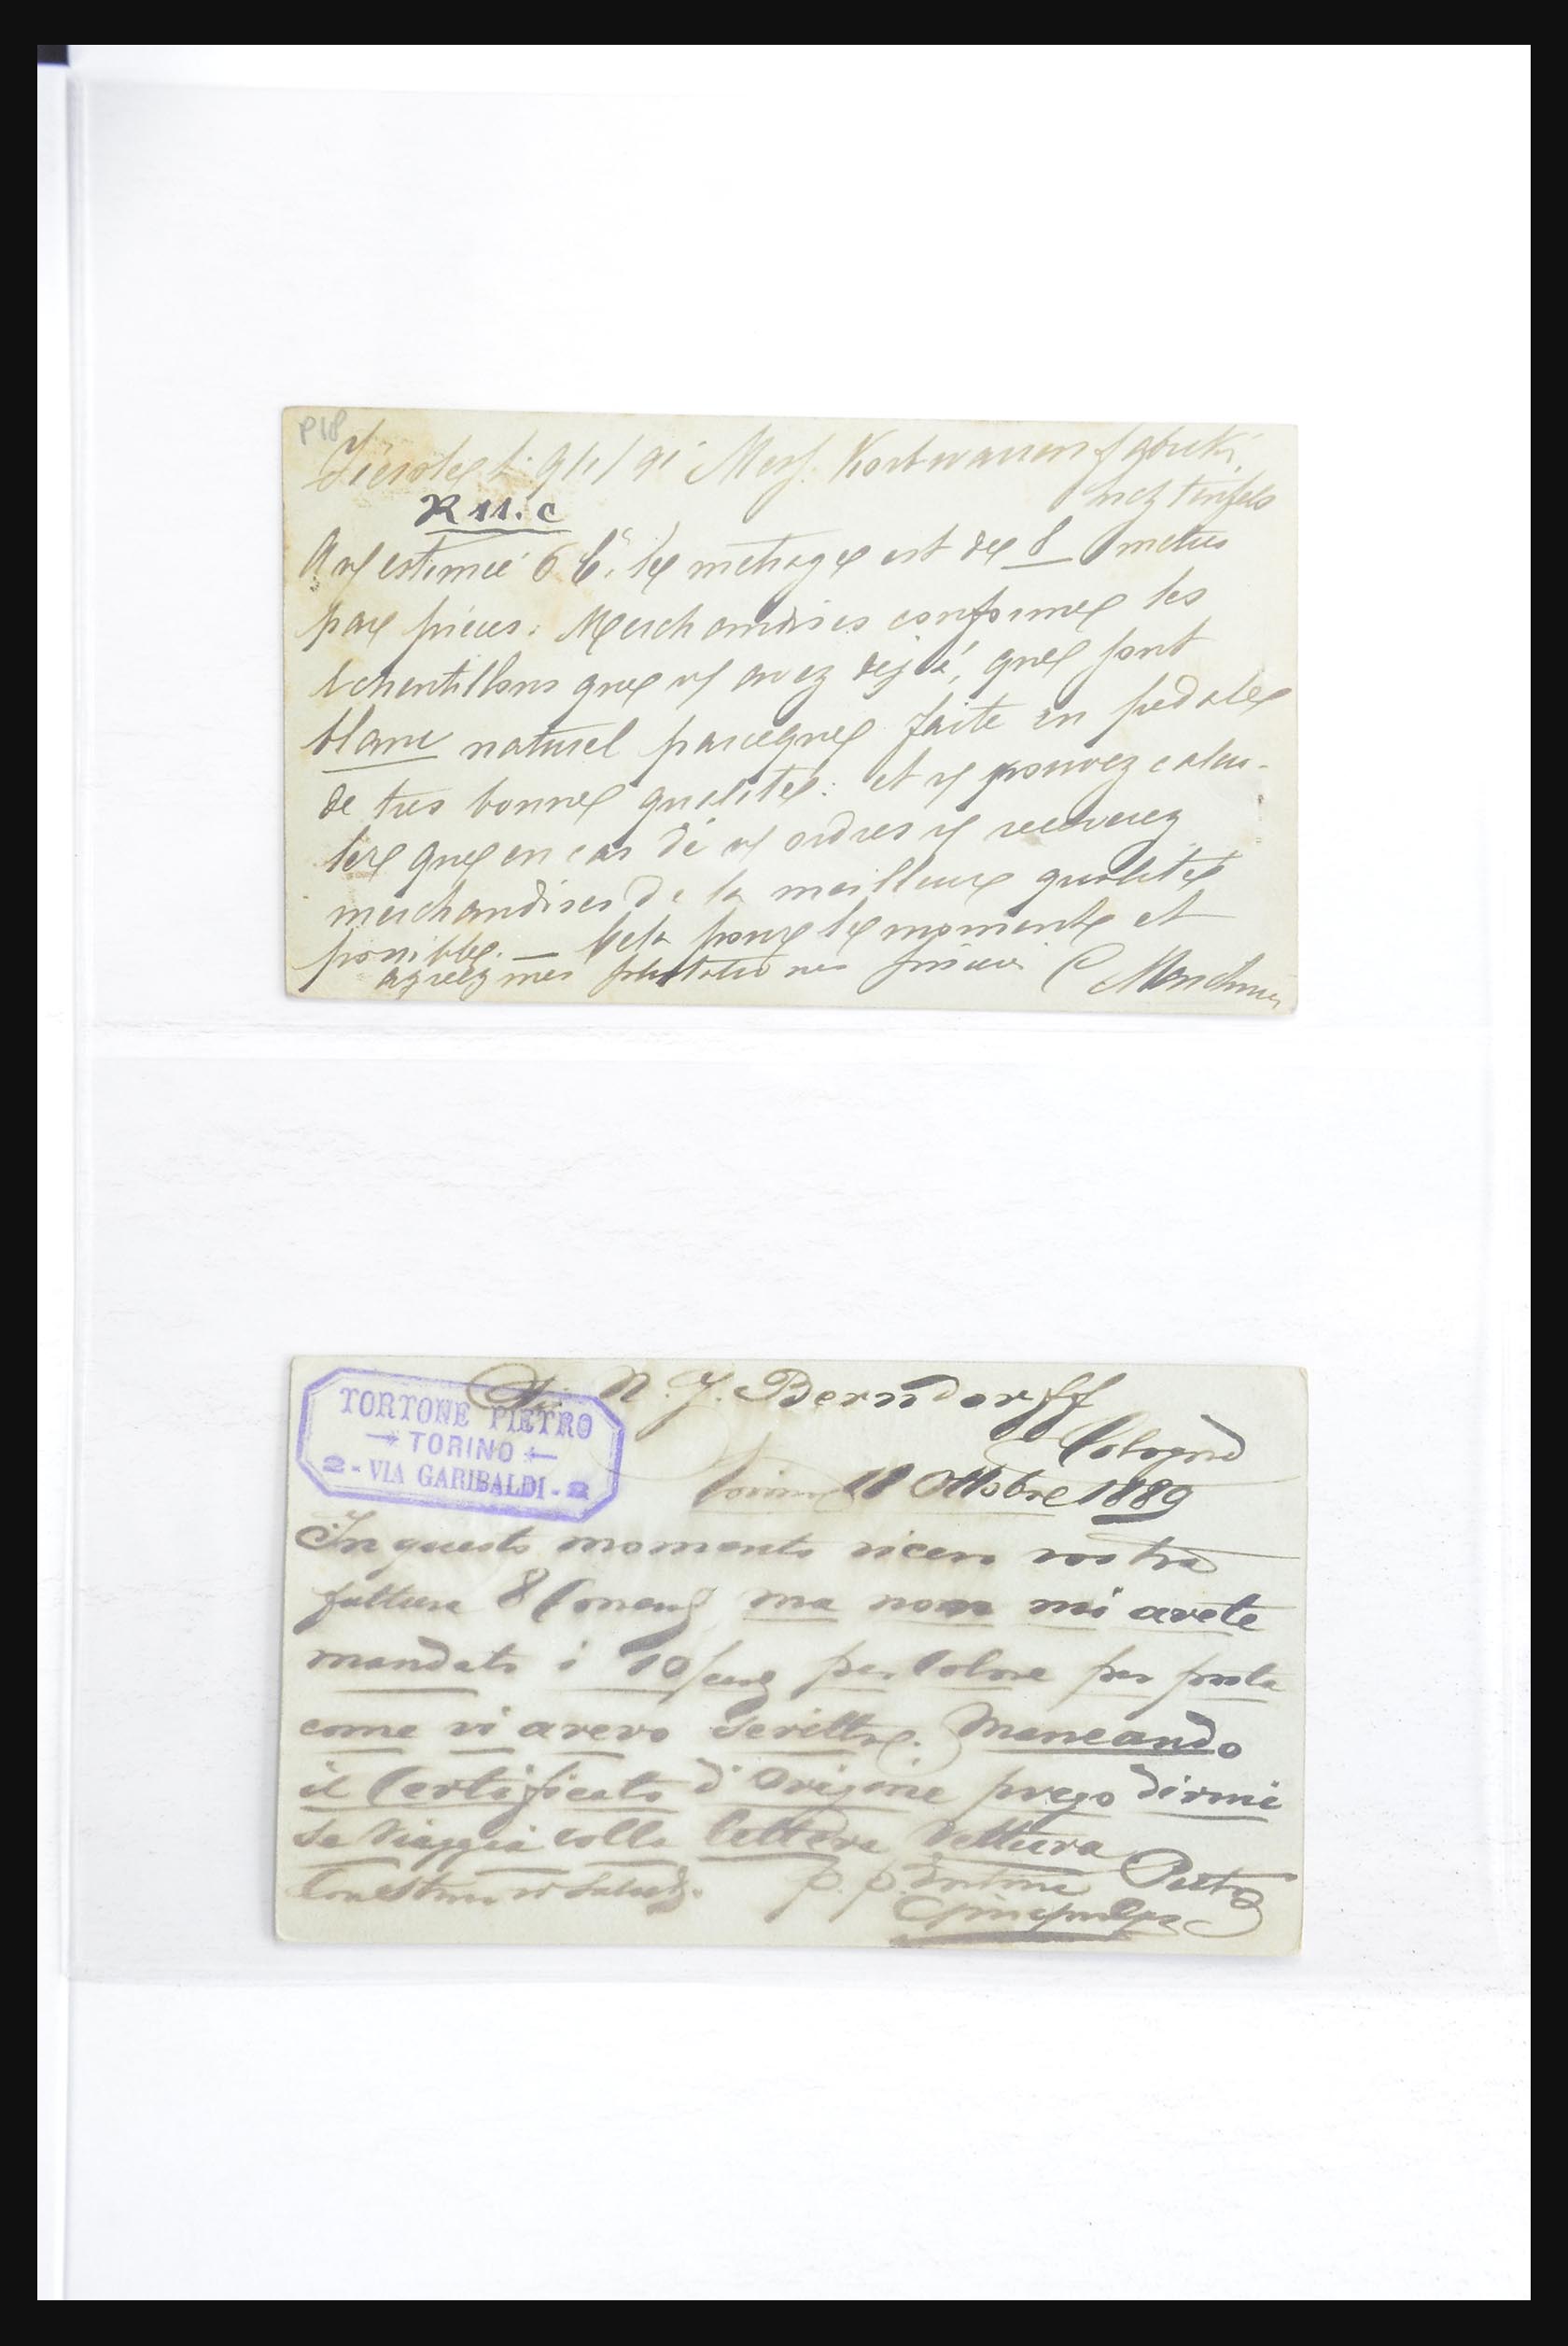 P18
Fiesole li 9/1/91 Mess. Korbwaren fabrik,
R 11. c
estimée 6 Ct. le metrage est de 8 metres
par pièces: Merchandises conforme les
echentillons que vs avez dejà, que sont
blanc naturel parceque faite en pedale
de tres bonne qualité: et vs pouvez calcu-
lere que en cas de vs ordres vs receverez
merchandises de la meilleure qualité
possible. — Cela pour le moment et
agreez mes
TORTONE PIETRO
TORINO
2 - VIA GARIBALDI - 2
N. J. Berndorff
Cologna
Torino 18 Ottobre 1889
In questo momento ricevo vostra
fattura 8 ma non mi avete
mandato i 10 per per posta
come vi avevo scritto. Mancando
il Certificato d'Origine prego dirmi
se viaggia colla lettera Vettura
p. p. Tortone Pietro